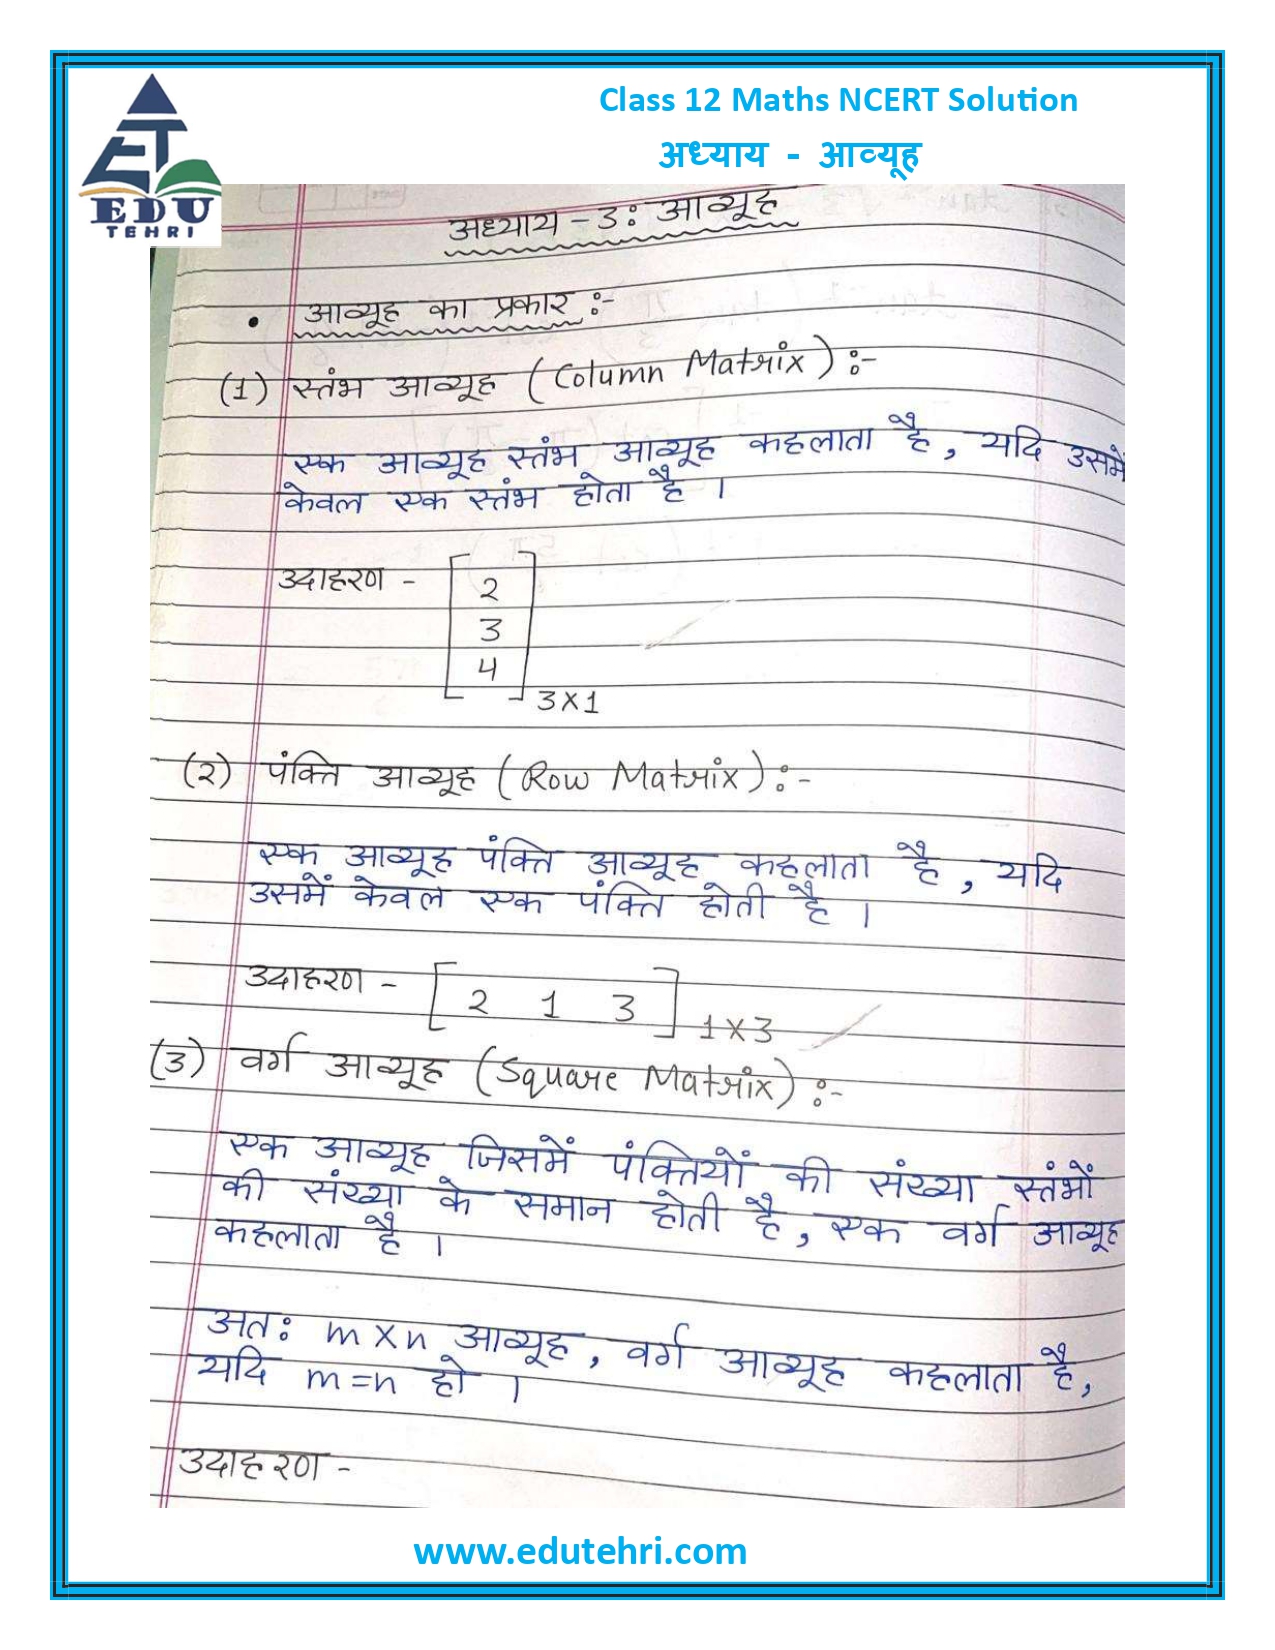 Class 12 Maths NCERT Solution
अध्याय - आव्यूह
EDU
TEHRI
अध्याय - 3: आव्यूह
• आव्यूह का प्रकार :-
(1) स्तंभ आव्यूह (Column Matrix) :-
एक आव्यूह स्तंभ आव्यूह कहलाता है, यदि उसमें
केवल एक स्तंभ होता है ।
उदाहरण - [2
3
4] 3×1
(2) पंक्ति आव्यूह (Row Matrix) :-
एक आव्यूह पंक्ति आव्यूह कहलाता है, यदि
उसमें केवल एक पंक्ति होती है ।
उदाहरण - [2 1 3] 1×3
(3) वर्ग आव्यूह (Square Matrix) :-
एक आव्यूह जिसमें पंक्तियों की संख्या स्तंभों
की संख्या के समान होती है, एक वर्ग आव्यूह
कहलाता है ।
अत: m×n आव्यूह, वर्ग आव्यूह कहलाता है,
यदि m=n हो ।
उदाहरण -
www.edutehri.com